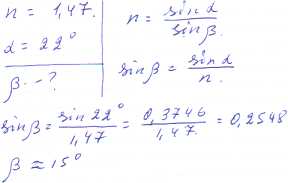 n = 1,47.
α = 22°
β - ?
n = sin α / sin β.
sin β = sin α / n.
sin β = sin 22° / 1,47 = 0,3746 / 1,47 = 0,2548
β ≈ 15°